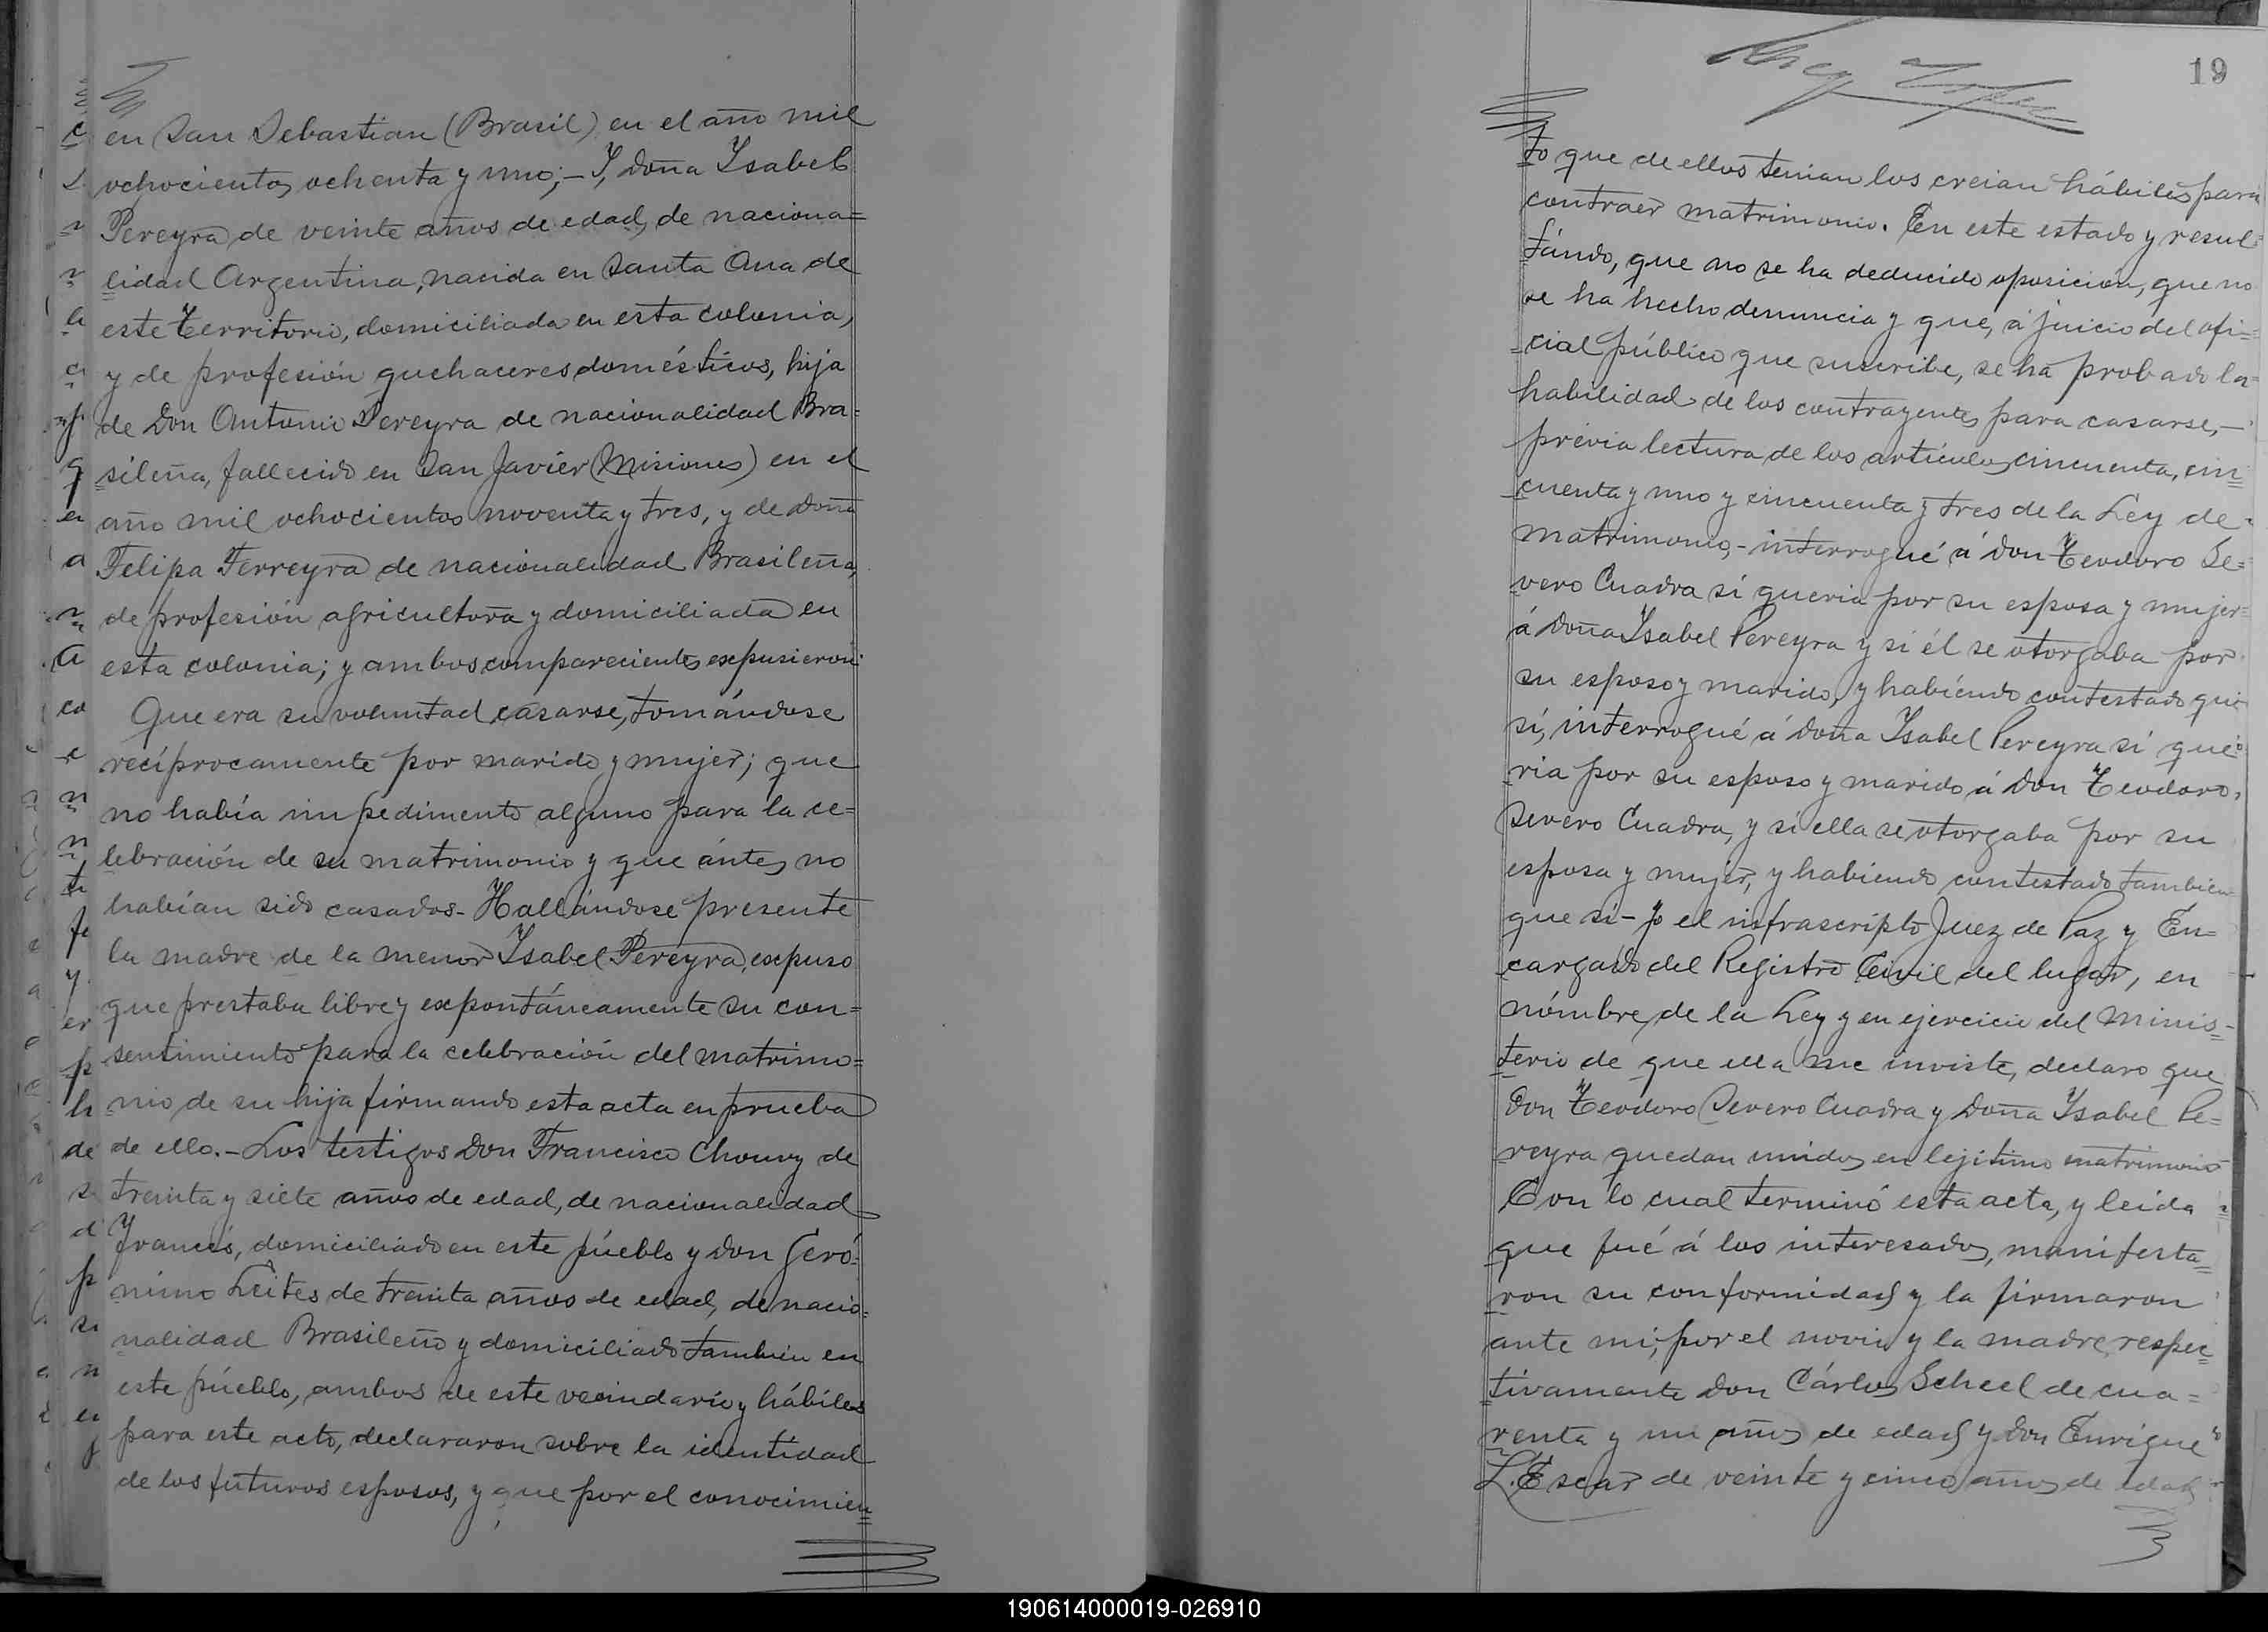 en San Sebastian (Brasil) en el año mil
ochocientos ochenta y uno; - Y, Doña Ysabel
Pereyra de veinte años de edad, de naciona=
lidad Argentina, nacida en Santa Ana de
este Territorio, domiciliada en esta colonia,
y de profesión quehaceres domésticos, hija
de Don Antonio Pereyra de nacionalidad Bra=
sileña, fallecido en San Javier (Misiones) en el
año mil ochocientos noventa y tres, y de Doña
Felipa Ferreyra de nacionalidad Brasileña,
de profesión agricultora y domiciliada en
esta colonia; y ambos comparecientes expusieron:
Que era su voluntad casarse, tomándose
recíprocamente por marido y mujer; que
no había impedimento alguno para la ce=
lebración de su matrimonio y que ántes no
habían sido casados - Hallándose presente
la madre de la menor Ysabel Pereyra, expuso
que prestaba libre y expontáneamente su con=
sentimiento para la celebración del matrimo=
nio de su hija firmando esta acta en prueba
de ello. - Los testigos Don Francisco Chouvy de
treinta y siete años de edad, de nacionalidad
Francés, domiciliado en este púeblo y Don Geró=
nimo Leites de treinta años de edad, de nacio=
nalidad Brasileño y domiciliado tambien en
este púeblo, ambos de este vecindario y hábiles
para este acto, declararon sobre la identidad
de los futuros esposos, y que por el conocimien=
19
to que de ellos tenian los creian hábiles para
contraer matrimonio. En este estado y resul=
tándo, que no se ha deducido oposición, que no
se ha hecho denuncia y que, á juicio del ofi=
=cial público que suscribe, se ha probado la=
habilidad de los contrayentes para casarse, -
prévia lectura de los artículos cincuenta, cin=
cuenta y uno y cincuenta y tres de la Ley de
matrimonio, - interrogué á Don Teodoro Se=
vero Cuadra si queria por su esposa y mujer=
á Doña Ysabel Pereyra y si él se otorgaba por
su esposo y marido, y habiendo contestado que
sí, interrogué á Doña Ysabel Pereyra si que=
ria por su esposo y marido á Don Teodoro
Severo Cuadra, y si ella se otorgaba por su
esposa y mujer, y habiendo contestado tambien
que sí - Yo el infrascripto Juez de Paz y En=
cargado del Registro Civil del lugar, en
nómbre de la Ley y en ejercicio del minis=
terio de que ella me inviste, declaro que
Don Teodoro Severo Cuadra y Doña Ysabel Pe=
reyra quedan unidos en lejitimo matrimonio
Con lo cual terminó esta acta, y leida =
que fué á los interesados, manifesta=
ron su conformidad y la firmaron
ante mi, por el novio y la madre respec=
tivamente Don Cárlos Scheel de cua=
renta y un años de edad y Don Enrique
L. Escar de veinte y cinco años de edad
190614000019-026910